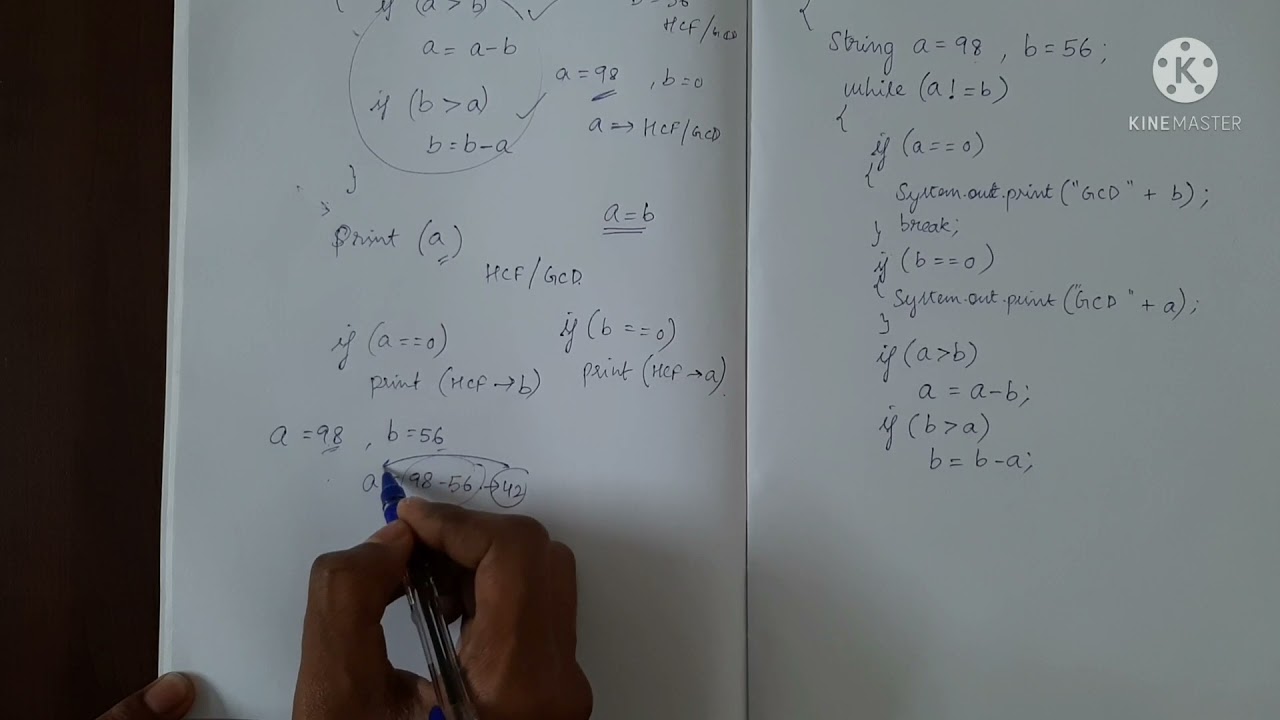 { if (a > b)
a = a-b
if (b > a)
b = b-a
}
}
print (a)
HCF/GCD
a = 98 , b = 0
a → HCF/GCD
a = b
HCF/GCD
if (a == 0)
print (HCF → b)
if (b == 0)
print (HCF → a)
a = 98 , b = 56
a = (98 - 56) → 42
{
String a = 98 , b = 56 ;
while (a! = b)
{
if (a == 0)
{
System.out.print ("GCD" + b) ;
} break;
if (b == 0)
{
System.out.print ("GCD" + a) ;
}
if (a > b)
a = a-b ;
if (b > a)
b = b-a ;
KINEMASTER